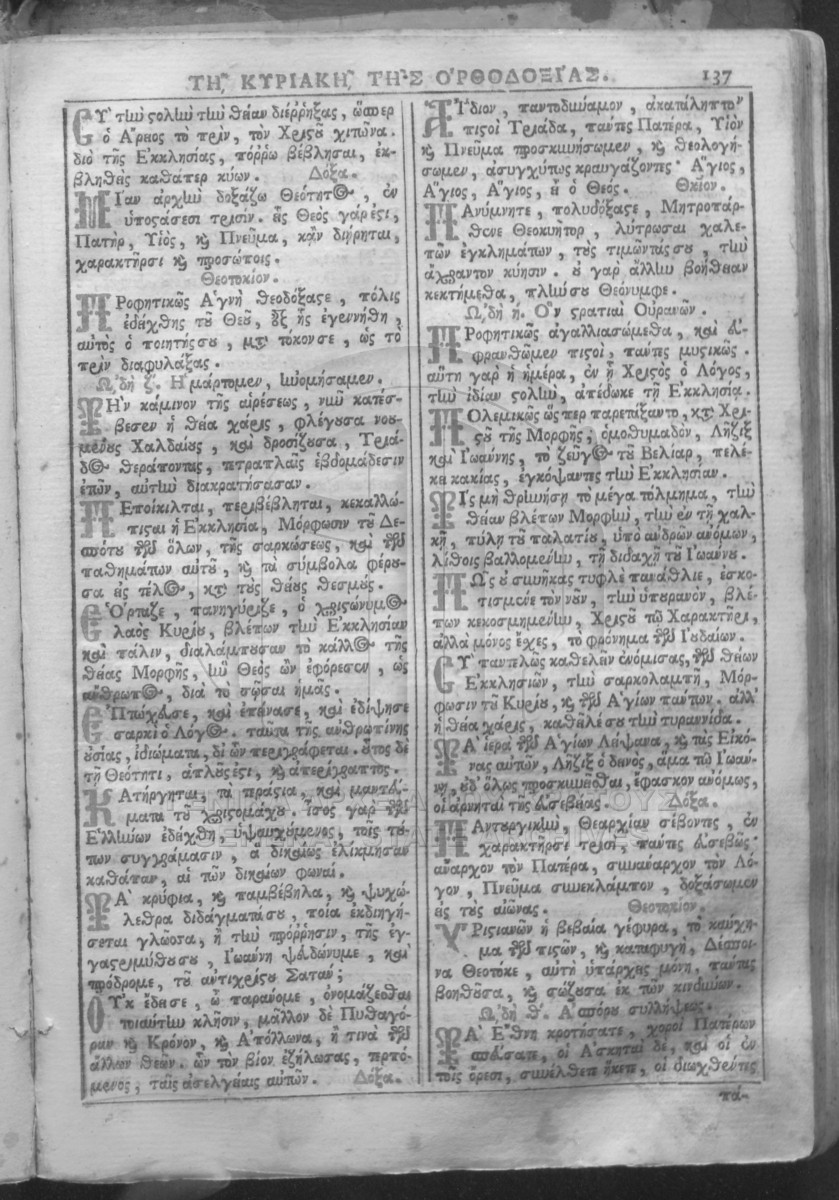 Τῌ͂ ΚΥΡΙΑΚῌ͂ ΤΗ͂Σ Ο᾿ΡΘΟΔΟΞΊΑΣ. 137
ΣῪ τὴν στολὴν τὴν θείαν διέῤῥηξας, ὥσπερ
ὁ Ἄρειος τὸ πρὶν, τὸν Χριστοῦ χιτῶνα.
διὸ τῆς Ἐκκλησίας, πόῤῥω βέβλησαι, ἐκ-
βληθεὶς καθάπερ κύων. Δόξα.
ΜΙ´αν ἀρχὴν δοξάζω Θεότητος, ἐν
ὑποστάσεσι τρισίν. εἷς Θεὸς γάρ ἐστι,
Πατὴρ, Υἱὸς, καὶ Πνεῦμα, κᾂν διῄρηται,
χαρακτῆρσι καὶ προσώποις.
Θεοτοκίον.
ΠΡοφητικῶς Ἁγνὴ θεοδόξαστε, πόλις
ἐδείχθης τοῦ Θεοῦ, ἐξ ἧς ἐγεννήθη,
αὐτὸς ὁ ποιητής σου, μετὰ τόκον σε, ὡς τὸ
πρὶν διαφυλάξας.
ᾨδὴ ζ. Ἡμάρτομεν, ἠνομήσαμεν.
ΤΗ`ν κάμινον τῆς αἱρέσεως, νῦν κατέσ-
βεσεν ἡ θεία χάρις, φλέγουσα νου-
μένους Χαλδαίους, καὶ δροσίζουσα, Τριά-
δος θεράποντας, τετραπλαῖς ἑβδομάδεσιν
ἐτῶν, αὐτὴν διακρατήσασαν.
ΠΕποίκιλται, περιβέβληται, κεκαλλώ-
πισται ἡ Ἐκκλησία, Μόρφωσιν τοῦ Δε-
σπότου τῶν ὅλων, τῆς σαρκώσεως, καὶ τῶν
παθημάτων αὐτοῦ, καὶ τὰ σύμβολα φέρου-
σα εἰς τέλος, κατὰ τοὺς θείους θεσμούς.
ΕΌρταζε, πανηγύριζε, ὁ χριστώνυμος
λαὸς Κυρίου, βλέπων τὴν Ἐκκλησίαν
καὶ πάλιν, διαλάμπουσαν τὸ κάλλος τῆς
θείας Μορφῆς, ἣν Θεὸς ὢν ἐφόρεσεν, ὡς
ἄνθρωπος, διὰ τὸ σῶσαι ἡμᾶς.
ΕΠτώχευσε, καὶ ἐπείνασε, καὶ ἐδίψησε
σαρκὶ ὁ Λόγος. ταῦτα τῆς ἀνθρωπίνης
οὐσίας, ἰδιώματα, δι' ὧν περιγράφεται. οὗτος δὲ
τῇ Θεότητι, ἁπλοῦς ἐστι, καὶ ἀπερίγραπτος.
ΚΑτήργηται, τὰ τεράστια, καὶ μαντεύ-
ματα τοῦ χριστομάχου. ἶσος γὰρ τῶν
Ἑλλήνων ἐδείχθη, ὑψαυχόμενος, τοῖς τού-
των συγγράμμασιν, ἃ δικαίως ἐλίκμησαν
καθάπαν, αἱ τῶν δικαίων φωναί.
ΤΑ` κρύφια, καὶ παμβέβηλα, καὶ ψυχώ-
λεθρα διδάγματά σου, ποία ἐκδιηγή-
σεται γλῶσσα, ἢ τὴν πρόῤῥησιν, τῆς ἐγ-
γαστριμύθου σου, Ἰωάννη ψευδώνυμε, καὶ
πρόδρομε, τοῦ ἀντιχρίστου Σατάν;
ΟΥ᾿κ ἔδει σε, ὦ παράνομε, ὀνομάζεσθαι
τοιαύτην κλῆσιν, μᾶλλον δὲ Πυθαγό-
ραν καὶ Κρόνον, καὶ Ἀπόλλωνα, ἤ τινα τῶν
ἄλλων θεῶν. ὧν τὸν βίον ἐζήλωσας, τερπό-
μενος, ταῖς ἀσελγείαις αὐτῶν. Δόξα.
ΑΊ̈διον, παντοδύναμον, ἀκατάληπτον
πιστοὶ Τριάδα, πάντες Πατέρα, Υἱὸν
καὶ Πνεῦμα προσκυνήσωμεν, καὶ θεολογή-
σωμεν, ἀσυγχύτως κραυγάζοντες· Ἅγιος,
Ἅγιος, Ἅγιος, εἶ ὁ Θεός. Θκίον.
ΠΑνύμνητε, πολυδόξαστε, Μητροπάρ-
θενε Θεοκυῆτορ, λύτρωσαι χαλε-
πῶν ἐγκλημάτων, τοὺς τιμῶντάς σου, τὴν
ἄχραντον κύησιν. οὐ γὰρ ἄλλην βοήθειαν
κεκτήμεθα, πλήν σου Θεόνυμφε.
ᾨδὴ η. Ὃν στρατιαὶ Οὐρανῶν.
ΠΡοφητικῶς ἀγαλλιασώμεθα, καὶ εὐ-
φρανθῶμεν πιστοὶ, πάντες μυστικῶς.
αὕτη γὰρ ἡ ἡμέρα, ἐν ᾗ Χριστὸς ὁ Λόγος,
τὴν ἰδίαν στολὴν, ἀπέδωκε τῇ Ἐκκλησίᾳ.
ΠΟλεμικῶς ὥσπερ παρετάξαντο, κατὰ Χρι-
στοῦ τῆς Μορφῆς, ὁμοθυμαδὸν, Λήζιξ
καὶ Ἰωάννης, τὸ ζεῦγος τοῦ Βελίαρ, πελέ-
κει κακίας, ἐγκόψαντες τὴν Ἐκκλησίαν.
ΤΙ´ς μὴ θρηνήσῃ τὸ μέγα τόλμημα, τὴν
θείαν βλέπων Μορφὴν, τὴν ἐν τῇ χαλ-
κῇ, πύλῃ τοῦ παλατίου, ὑπὸ ἀνδρῶν ἀνόμων,
λίθοις βαλλομένην, τῇ διδαχῇ τοῦ Ἰωάννου.
ΠΩ῀ς οὐ συνῆκας τυφλὲ πανάθλιε, ἐσκο-
τισμένε τὸν νοῦν, τὴν ὑπουρανὸν, βλέ-
πων κεκοσμημένην, Χριστοῦ τῷ Χαρακτῆρι,
ἀλλὰ μόνος ἔχεις, τὸ φρόνημα τῶν Ἰουδαίων.
ΣΥ` παντελῶς καθελεῖν ἐνόμισας, τῶν θείων
Ἐκκλησιῶν, τὴν σαρκολαμπῆ, Μόρ-
φωσιν τοῦ Κυρίου, καὶ τῶν Ἁγίων πάντων. ἀλλ'
ἡ θεία χάρις, καθεῖλέ σου τὴν τυραννίδα.
ΤΑ` ἱερὰ τῶν Ἁγίων Λείψανα, καὶ τὰς Εἰκό-
νας αὐτῶν, Λήζιξ ὁ δεινὸς, ἅμα τῷ Ἰωάν-
νῃ, οὐδ' ὅλως προσκυνεῖσθαι, ἔφασκον ἀνόμως,
οἱ ἀρνηταὶ τῆς εὐσεβείας. Δόξα.
ΠΑντουργικὴν, Θεαρχίαν σέβοντες, ἐν
χαρακτῆρσι τρισὶ, πάντες εὐσεβῶς·
ἄναρχον τὸν Πατέρα, συνάναρχον τὸν Λό-
γον, Πνεῦμα συνεκλάμπον, δοξάσωμεν
εἰς τοὺς αἰῶνας. Θεοτοκίον.
ΧΡιστιανῶν ἡ βεβαία γέφυρα, τὸ καύχη-
μα τῶν πιστῶν, καὶ καταφυγὴ, Δέσποι-
να Θεοτόκε, αὐτὴ ὑπάρχεις μόνη, πάντας
βοηθοῦσα, καὶ σώζουσα ἐκ τῶν κινδύνων.
ᾨδὴ θ. Ἀσπόρου συλλήψεως.
ΤΑ` Ἔθνη κροτήσατε, χοροὶ Πατέρων
σπεύσατε, οἱ Ἀσκηταὶ δὲ, καὶ οἱ ἐν
τοῖς ὄρεσι, συνέλθετε ἥκετε, οἱ διωχθέντες
πά-